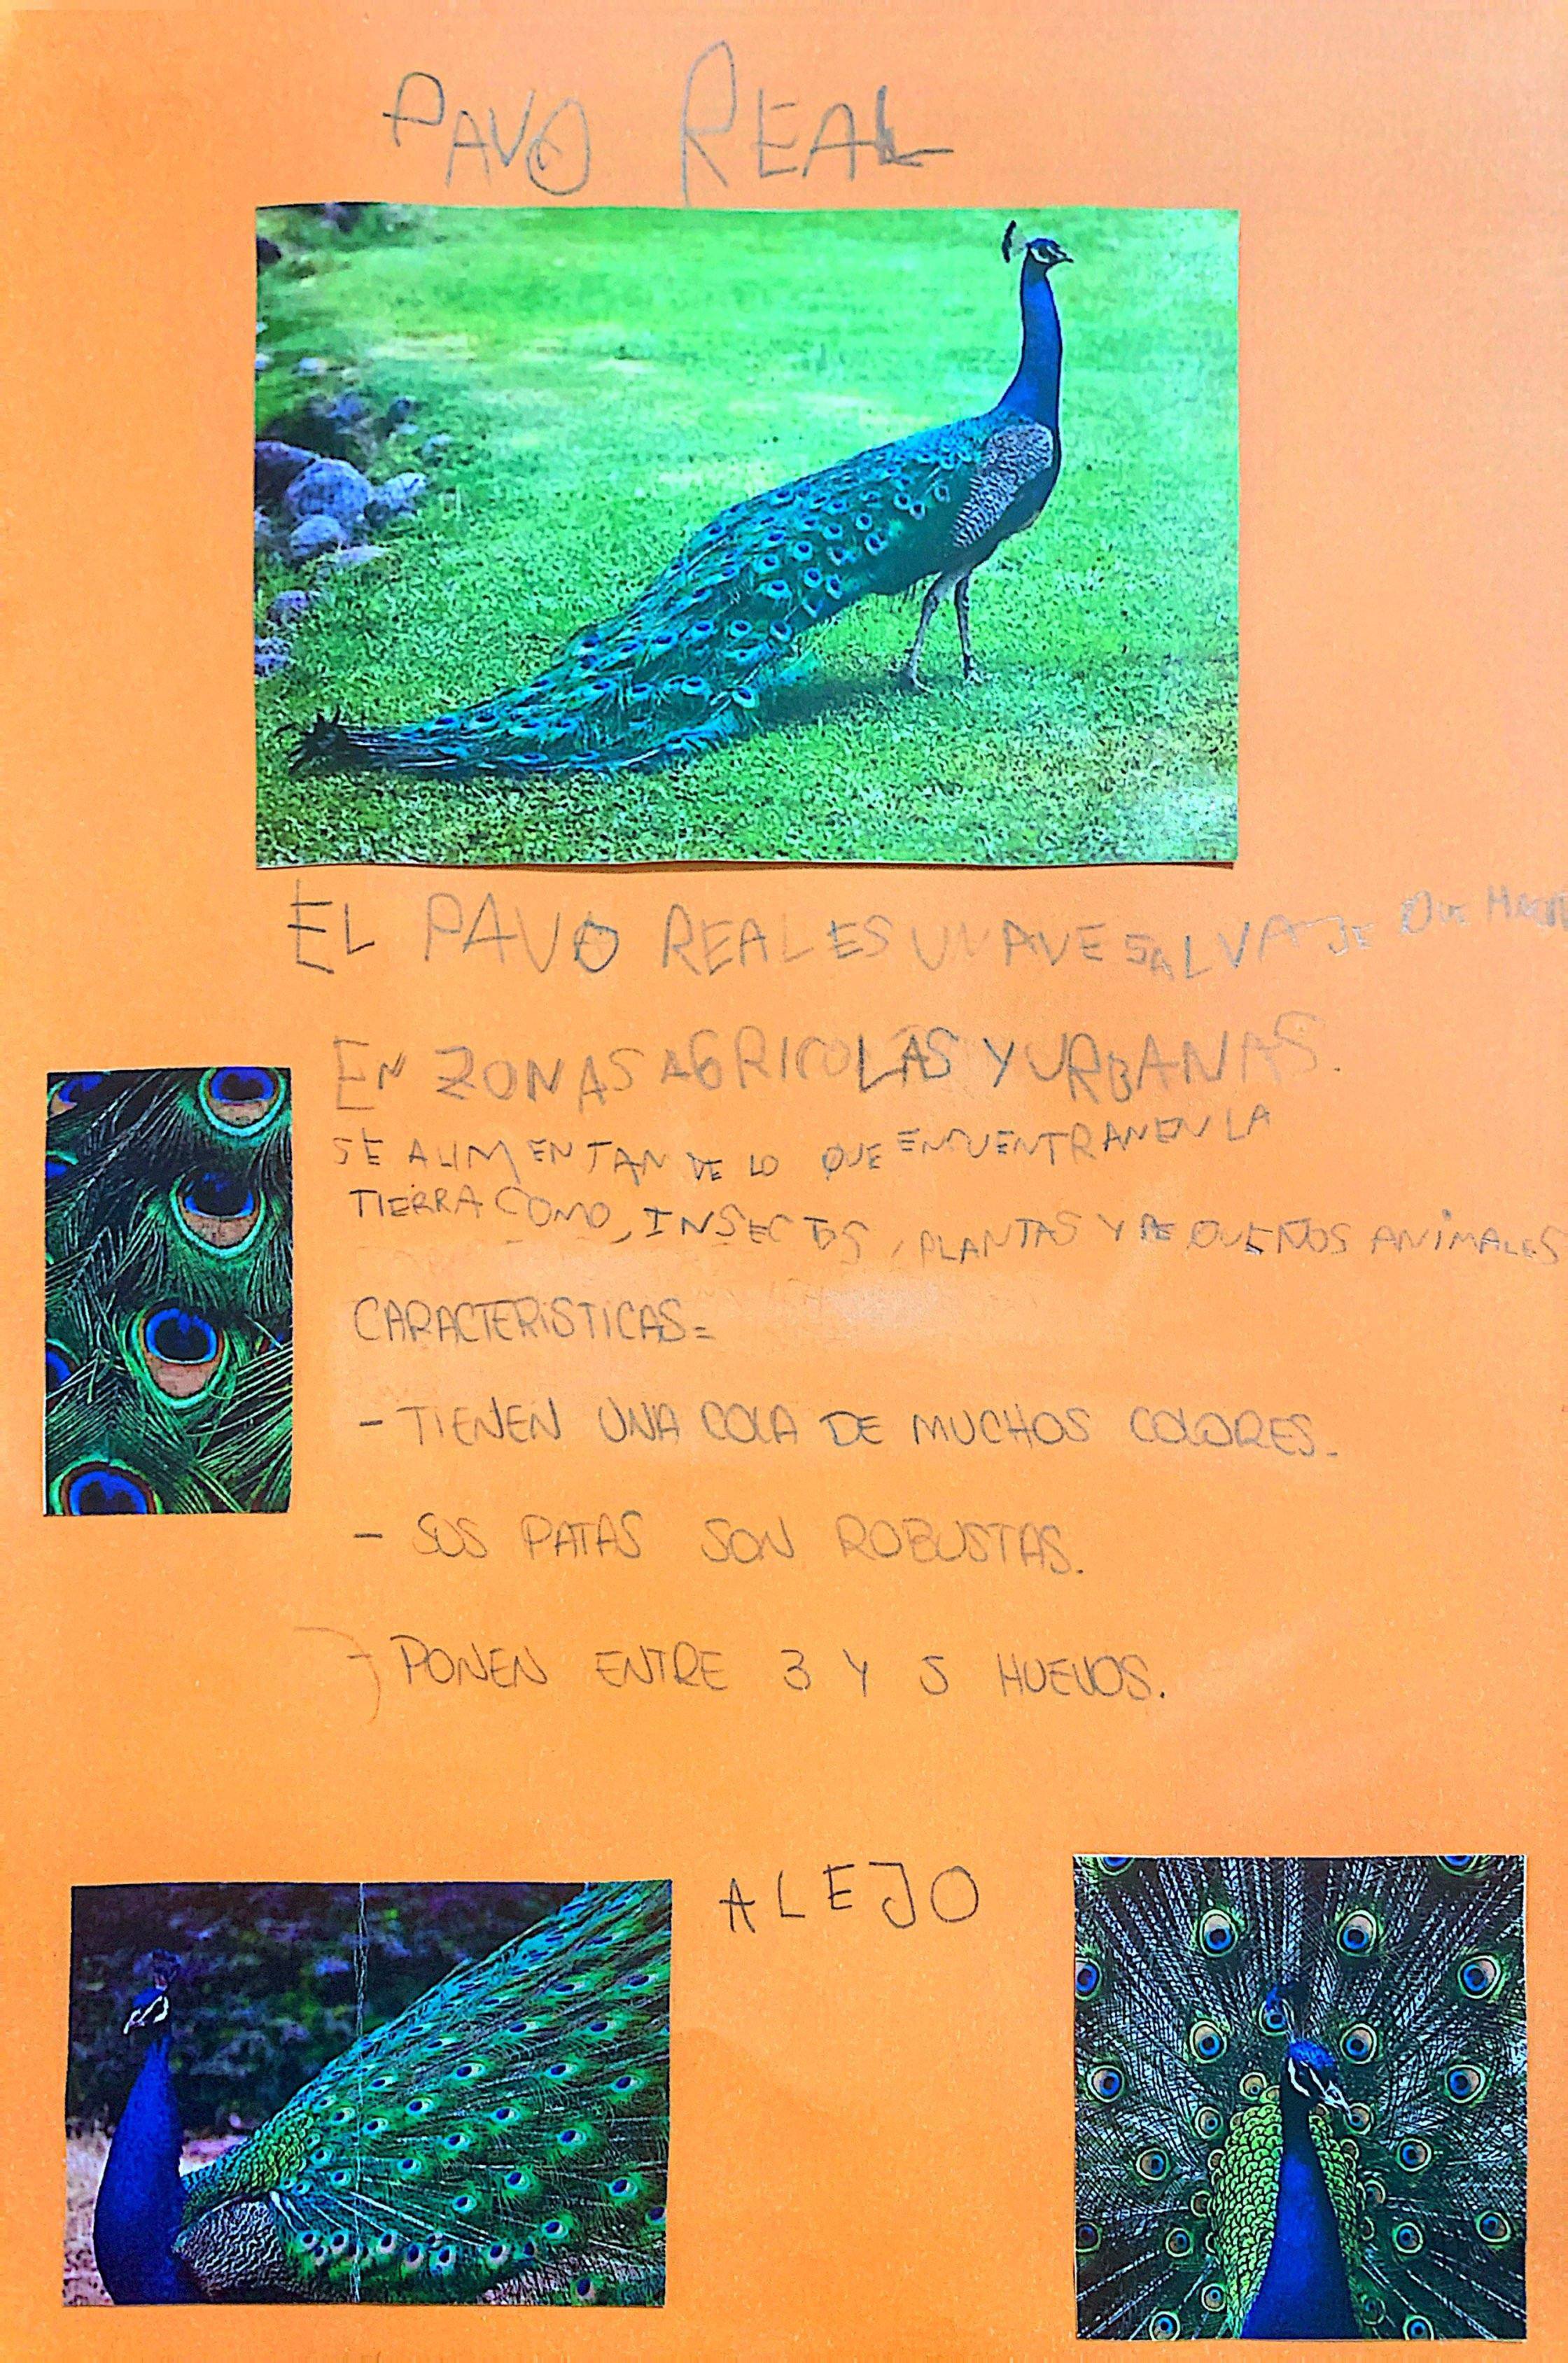 PAVO REAL
EL PAVO REAL ES UN AVE SALVAJE QUE
EN ZONAS AGRICOLAS Y URBANAS.
SE ALIMENTAN DE LO QUE ENCUENTRAN EN LA
TIERRA COMO, INSECTOS, PLANTAS Y PEQUEÑOS ANIMALES
CARACTERISTICAS=
- TIENEN UNA COLA DE MUCHOS COLORES.
- SUS PATAS SON ROBUSTAS.
- PONEN ENTRE 3 Y 5 HUEVOS.
ALEJO